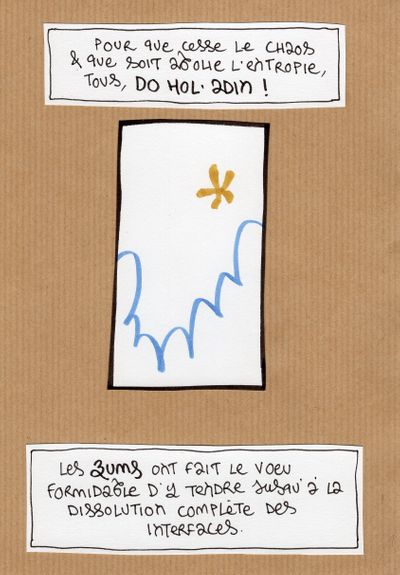 POUR QUE CESSE LE CHAOS
& QUE SOIT ABOLIE L'ENTROPIE,
TOUS, DO HOL. ADIN !
LES ZUMS ONT FAIT LE VOEU
FORMIDABLE D'Y TENDRE JUSQU'À LA
DISSOLUTION COMPLÈTE DES
INTERFACES.